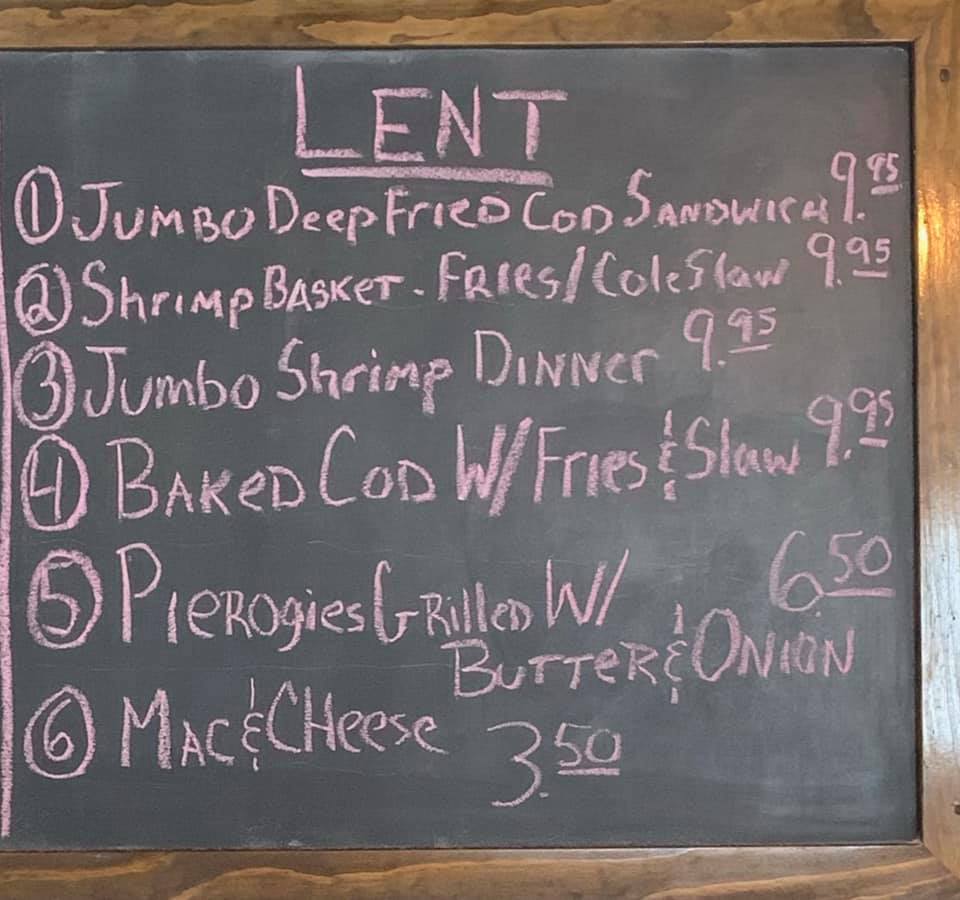 LENT
① JUMBO DeepFrieD COD SANDWICH 9.95
② Shrimp BASKET - FRIes/ColeSlaw 9.95
③ Jumbo Shrimp DINNer 9.95
④ BAKeD COD W/Fries & Slaw 9.95
⑤ PIeROgies GRilleD W/ 6.50
BUTTER & ONION
⑥ MAC & CHeese 3.50